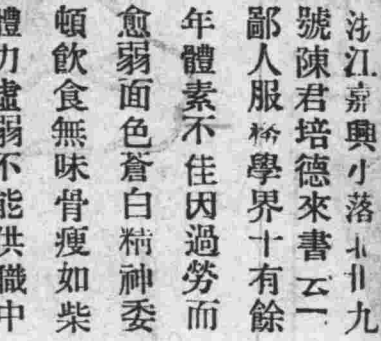 江嘉興小落北廿九
號陳君培德來書云一
鄙人服務學界十有餘
年體素不佳因過勞而
愈弱面色蒼白精神委
頓飲食無味骨瘦如柴
體力虛弱不能供職中